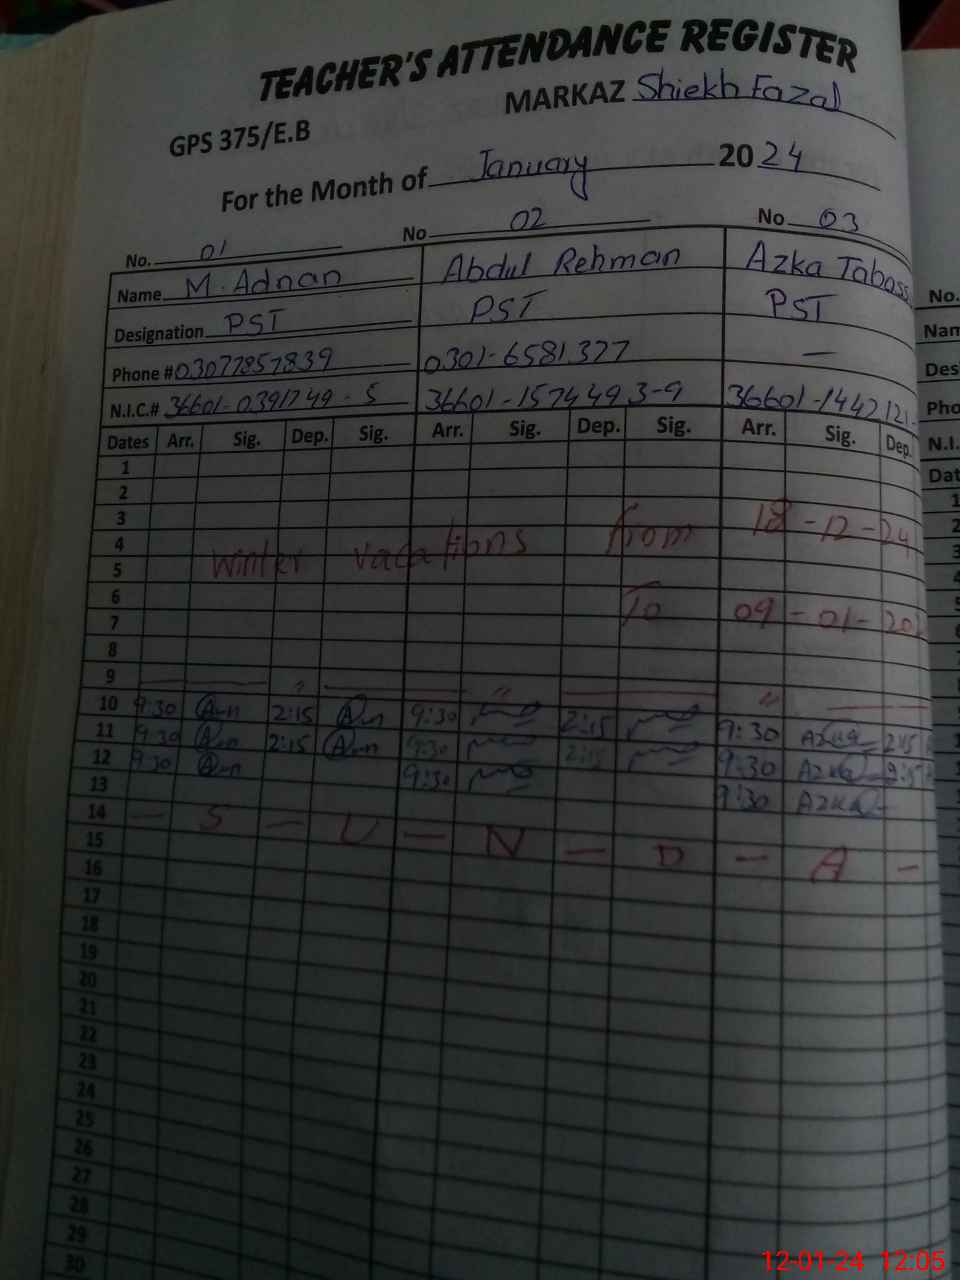 TEACHER'S ATTENDANCE REGISTER
GPS 375/E.B MARKAZ Shiekh Fazal
For the Month of January 2024
No. 01 No 02 No 03
Name M. Adnan Abdul Rehman Azka Tabass
Designation PST PST PST
Phone # 03077857839 0301-6581377 —
N.I.C.# 36601-0391749-5 36601-1574493-9 36601-1447121-
Dates Arr. Sig. Dep. Sig. Arr. Sig. Dep. Sig. Arr. Sig. Dep.
1
2
3
4 winter vacations from 18-12-24
5
6
7 To 09-01-20
8
9 — " — " — " —
10 9:30 2:15 9:30 2:15 9:30 Azka 2:15
11 9:30 2:15 9:30 2:15 9:30 Azka 2:15
12 9:30 9:30 9:30 Azka
13
14 — S — U — N — D — A —
15
16
17
18
19
20
21
22
23
24
25
26
27
28
29
30
No.
Nam
Des
Pho
N.I.
Dat
12-01-24 12:05